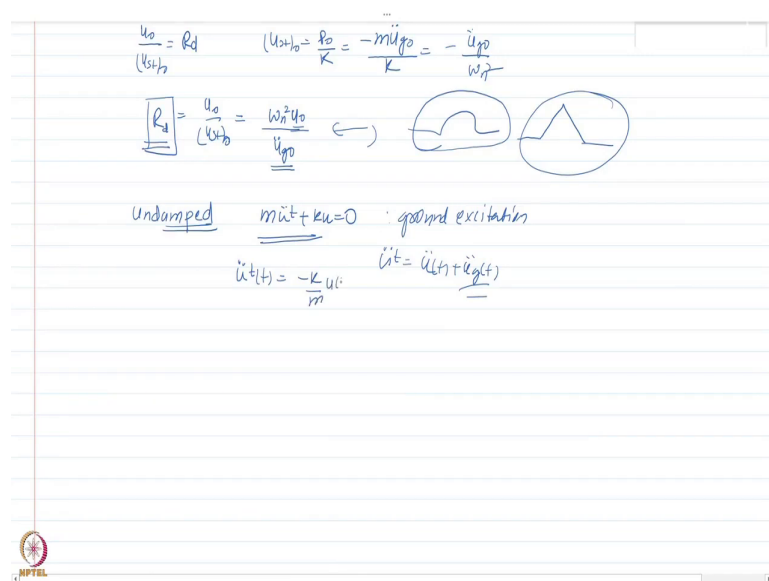 u₀/(ust)₀ = Rd (ust)₀ = P₀/K = -müg₀/K = - üg₀/ωn²
Rd = u₀/(ust)₀ = ωn²u₀/üg₀ ⟵
Undamped müᵗ + ku = 0 : ground excitation
üᵗ(t) = -k/m u( üᵗ = ü(t) + üg(t)
NPTEL